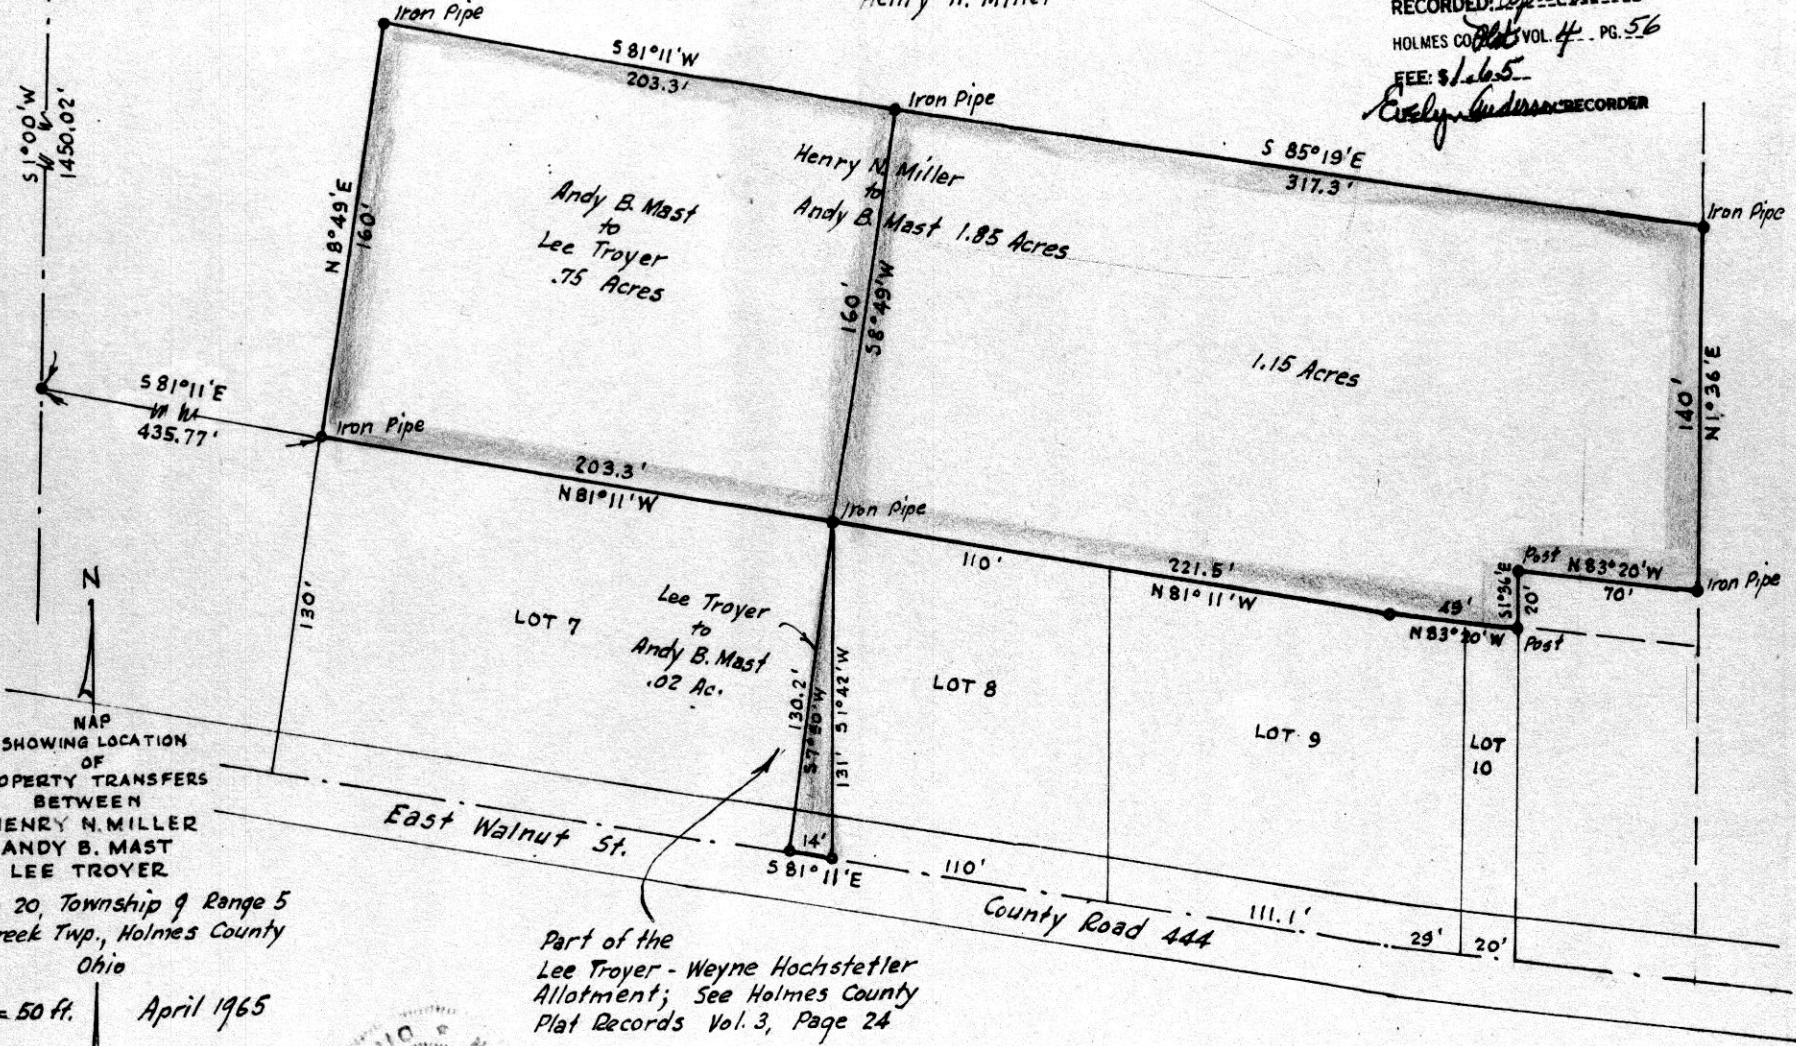 Henry N. Miller
RECORDED:
HOLMES CO. Plat VOL. 4 PG. 56
FEE: $1.65
Evelyn Anderson RECORDER
Iron Pipe
S 81°11'W
203.3'
Iron Pipe
S 85°19'E
317.3'
Iron Pipe
S 1°00'W
1450.02'
N 8°49'E
160'
Andy B. Mast
to
Lee Troyer
.75 Acres
Henry N. Miller
to
Andy B. Mast 1.85 Acres
160'
S 8°49'W
1.15 Acres
140'
N 1°36'E
S 81°11'E
435.77'
Iron Pipe
203.3'
N 81°11'W
Iron Pipe
110'
221.5'
N 81°11'W
49'
N 83°20'W
S 1°36'E
20'
Post
N 83°20'W
70'
Iron Pipe
Post
130'
LOT 7
Lee Troyer
to
Andy B. Mast
.02 Ac.
130.2'
131'
S 1°42'W
LOT 8
LOT 9
LOT
10
N
MAP
SHOWING LOCATION
OF
OPERTY TRANSFERS
BETWEEN
HENRY N. MILLER
ANDY B. MAST
LEE TROYER
20, Township 9 Range 5
reek Twp., Holmes County
Ohio
= 50 ft.
April 1965
East Walnut St.
14'
S 81°11'E
110'
County Road 444
111.1'
29'
20'
Part of the
Lee Troyer - Weyne Hochstetler
Allotment; See Holmes County
Plat Records Vol. 3, Page 24